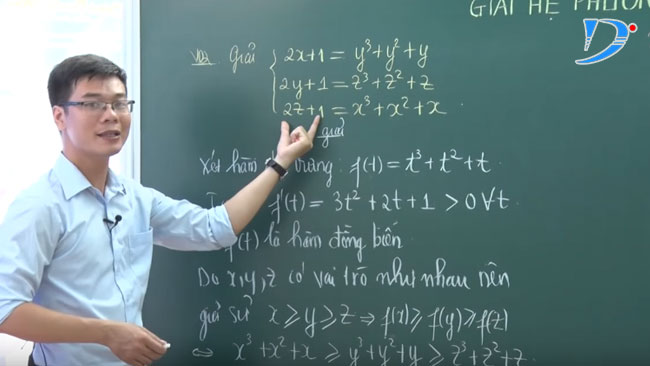 GIẢI HỆ PHƯƠN
VD2. Giải
2x+1 = y³+y²+y
2y+1 = z³+z²+z
2z+1 = x³+x²+x .
giải
Xét hàm trưng: f(t) = t³+t²+t.
f'(t) = 3t²+2t+1 >0 ∀t
f(t) là hàm đồng biến
Do x,y,z có vai trò như nhau nên
giả sử x ⩾ y ⩾ z ⇒ f(x) ⩾ f(y) ⩾ f(z)
⇔ x³+x²+x ⩾ y³+y²+y ⩾ z³+z²+z.